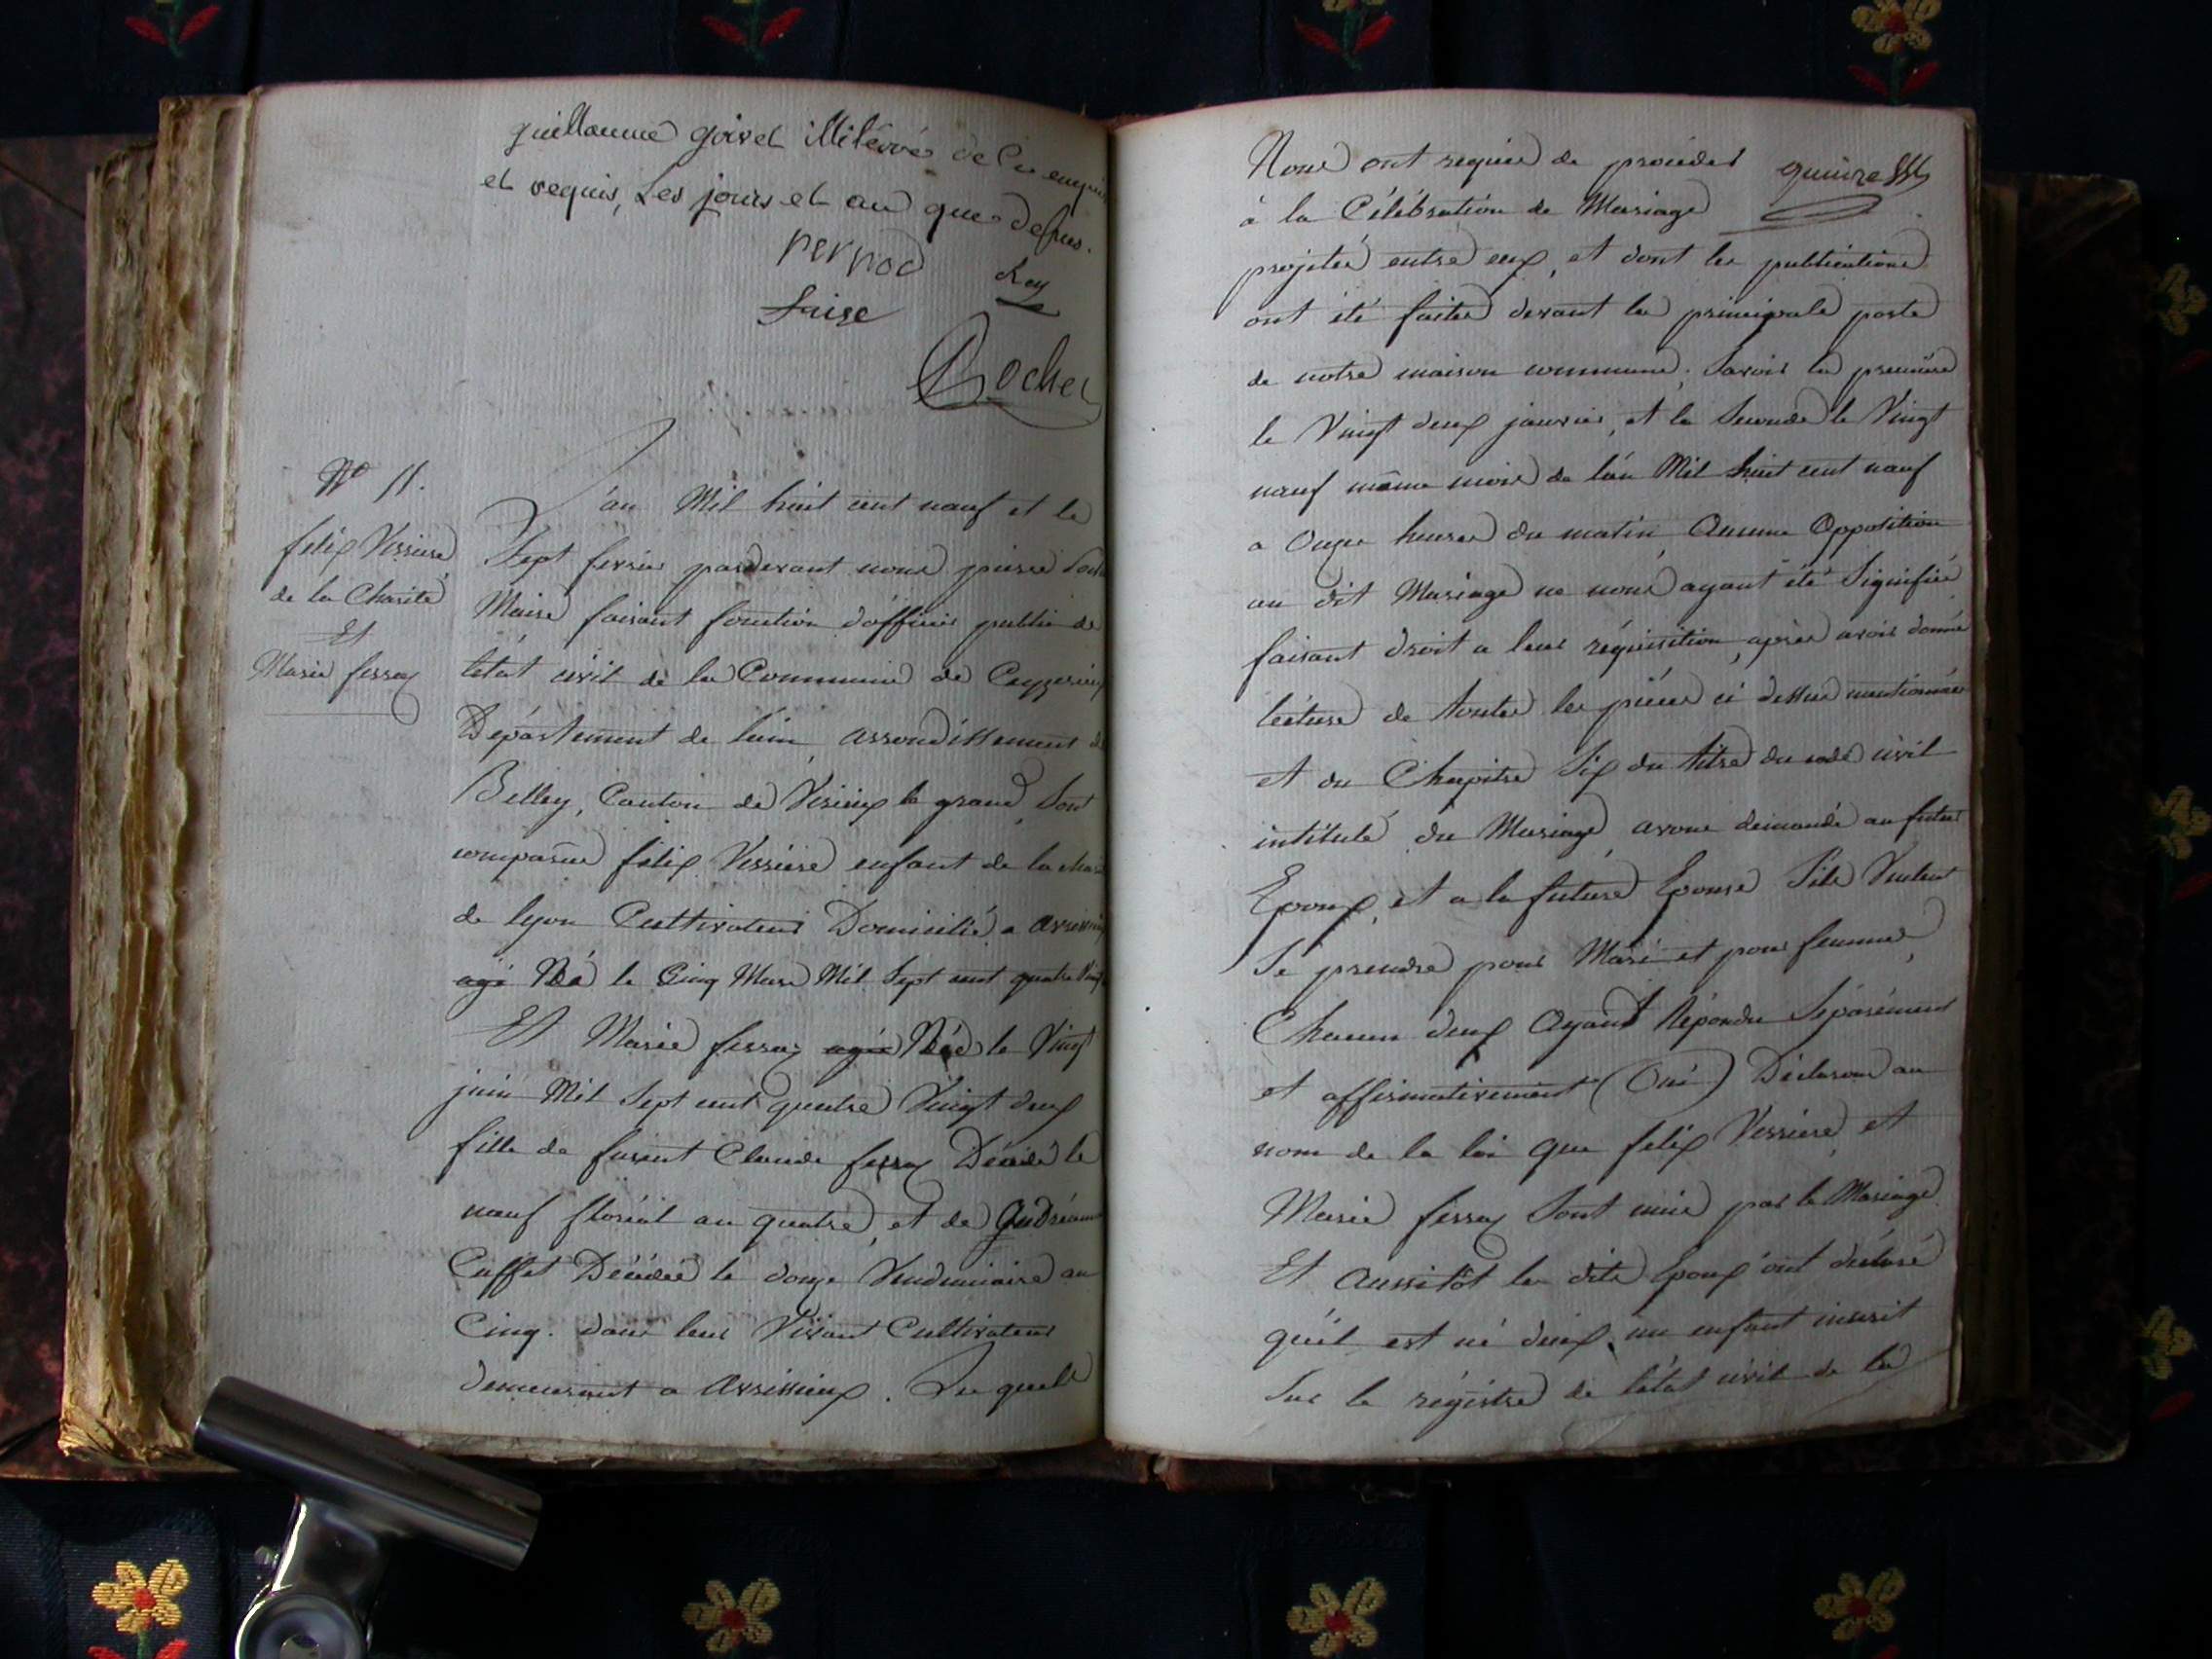 guillaume goiret illiterés de Ce enquis
et requis, Les jours et an que dessus.
pernod Rey
Suise
Rochet
N° 11.
felix Verriere
de la Charité
Et
Marie ferraz
L'an Mil huit cent neuf et le
Sept fevrier pardevant nous
Maire faisant fonction d'officier public de
létat civil de la Commune de Ceyzerieux
Département de lain arrondissement de
Belley, Canton de Virieux le grand, Sont
comparus félix Verriere enfant de la
de lyon Cultivateur Domicilié a
agé Né le Cinq Mars Mil Sept cent quatre Vingt
Et Marie ferraz agée Née le Vingt
juin Mil Sept cent quatre Vingt deux
fille de furent Claude ferraz Décédé le
neuf floréal an quatre, et de
Caffet Décédée le douze Vendemiaire an
Cinq. dans leur Vivant Cultivateur
demeurant a Avrissieux. Les quels
Nous ont requis de procéder
quinze
à la Célébration de Mariage
projetée entre eux, et dont les publications
ont été faites devant la principale porte
de notre maison commune; Savoir la premiere
le Vingt deux janvier, et la Seconde le Vingt
neuf même mois de l'an Mil huit cent neuf
a Onze heures du matin, Aucune Opposition
au dit Mariage ne nous ayant été Signifiée
faisant droit a leur réquisition, après avoir donné
lecture de toutes les pièces ci dessus mentionnées
et du Chapitre Six du titre du code civil
intitulé du Mariage, avons demandé au futur
Epoux, et a la future Epouse S'ils Veulent
Se prendre pour Mari et pour femme,
Chacun deux Ayant Répondu Séparément
et affirmativement (Oui) Déclarons au
nom de la loi que felix Verriere, et
Marie ferraz Sont unis par le Mariage
Et Aussitôt les dits Epoux ont déclaré
qu'il est né deux, un enfant inscrit
Sur le régistre de létat civil de la